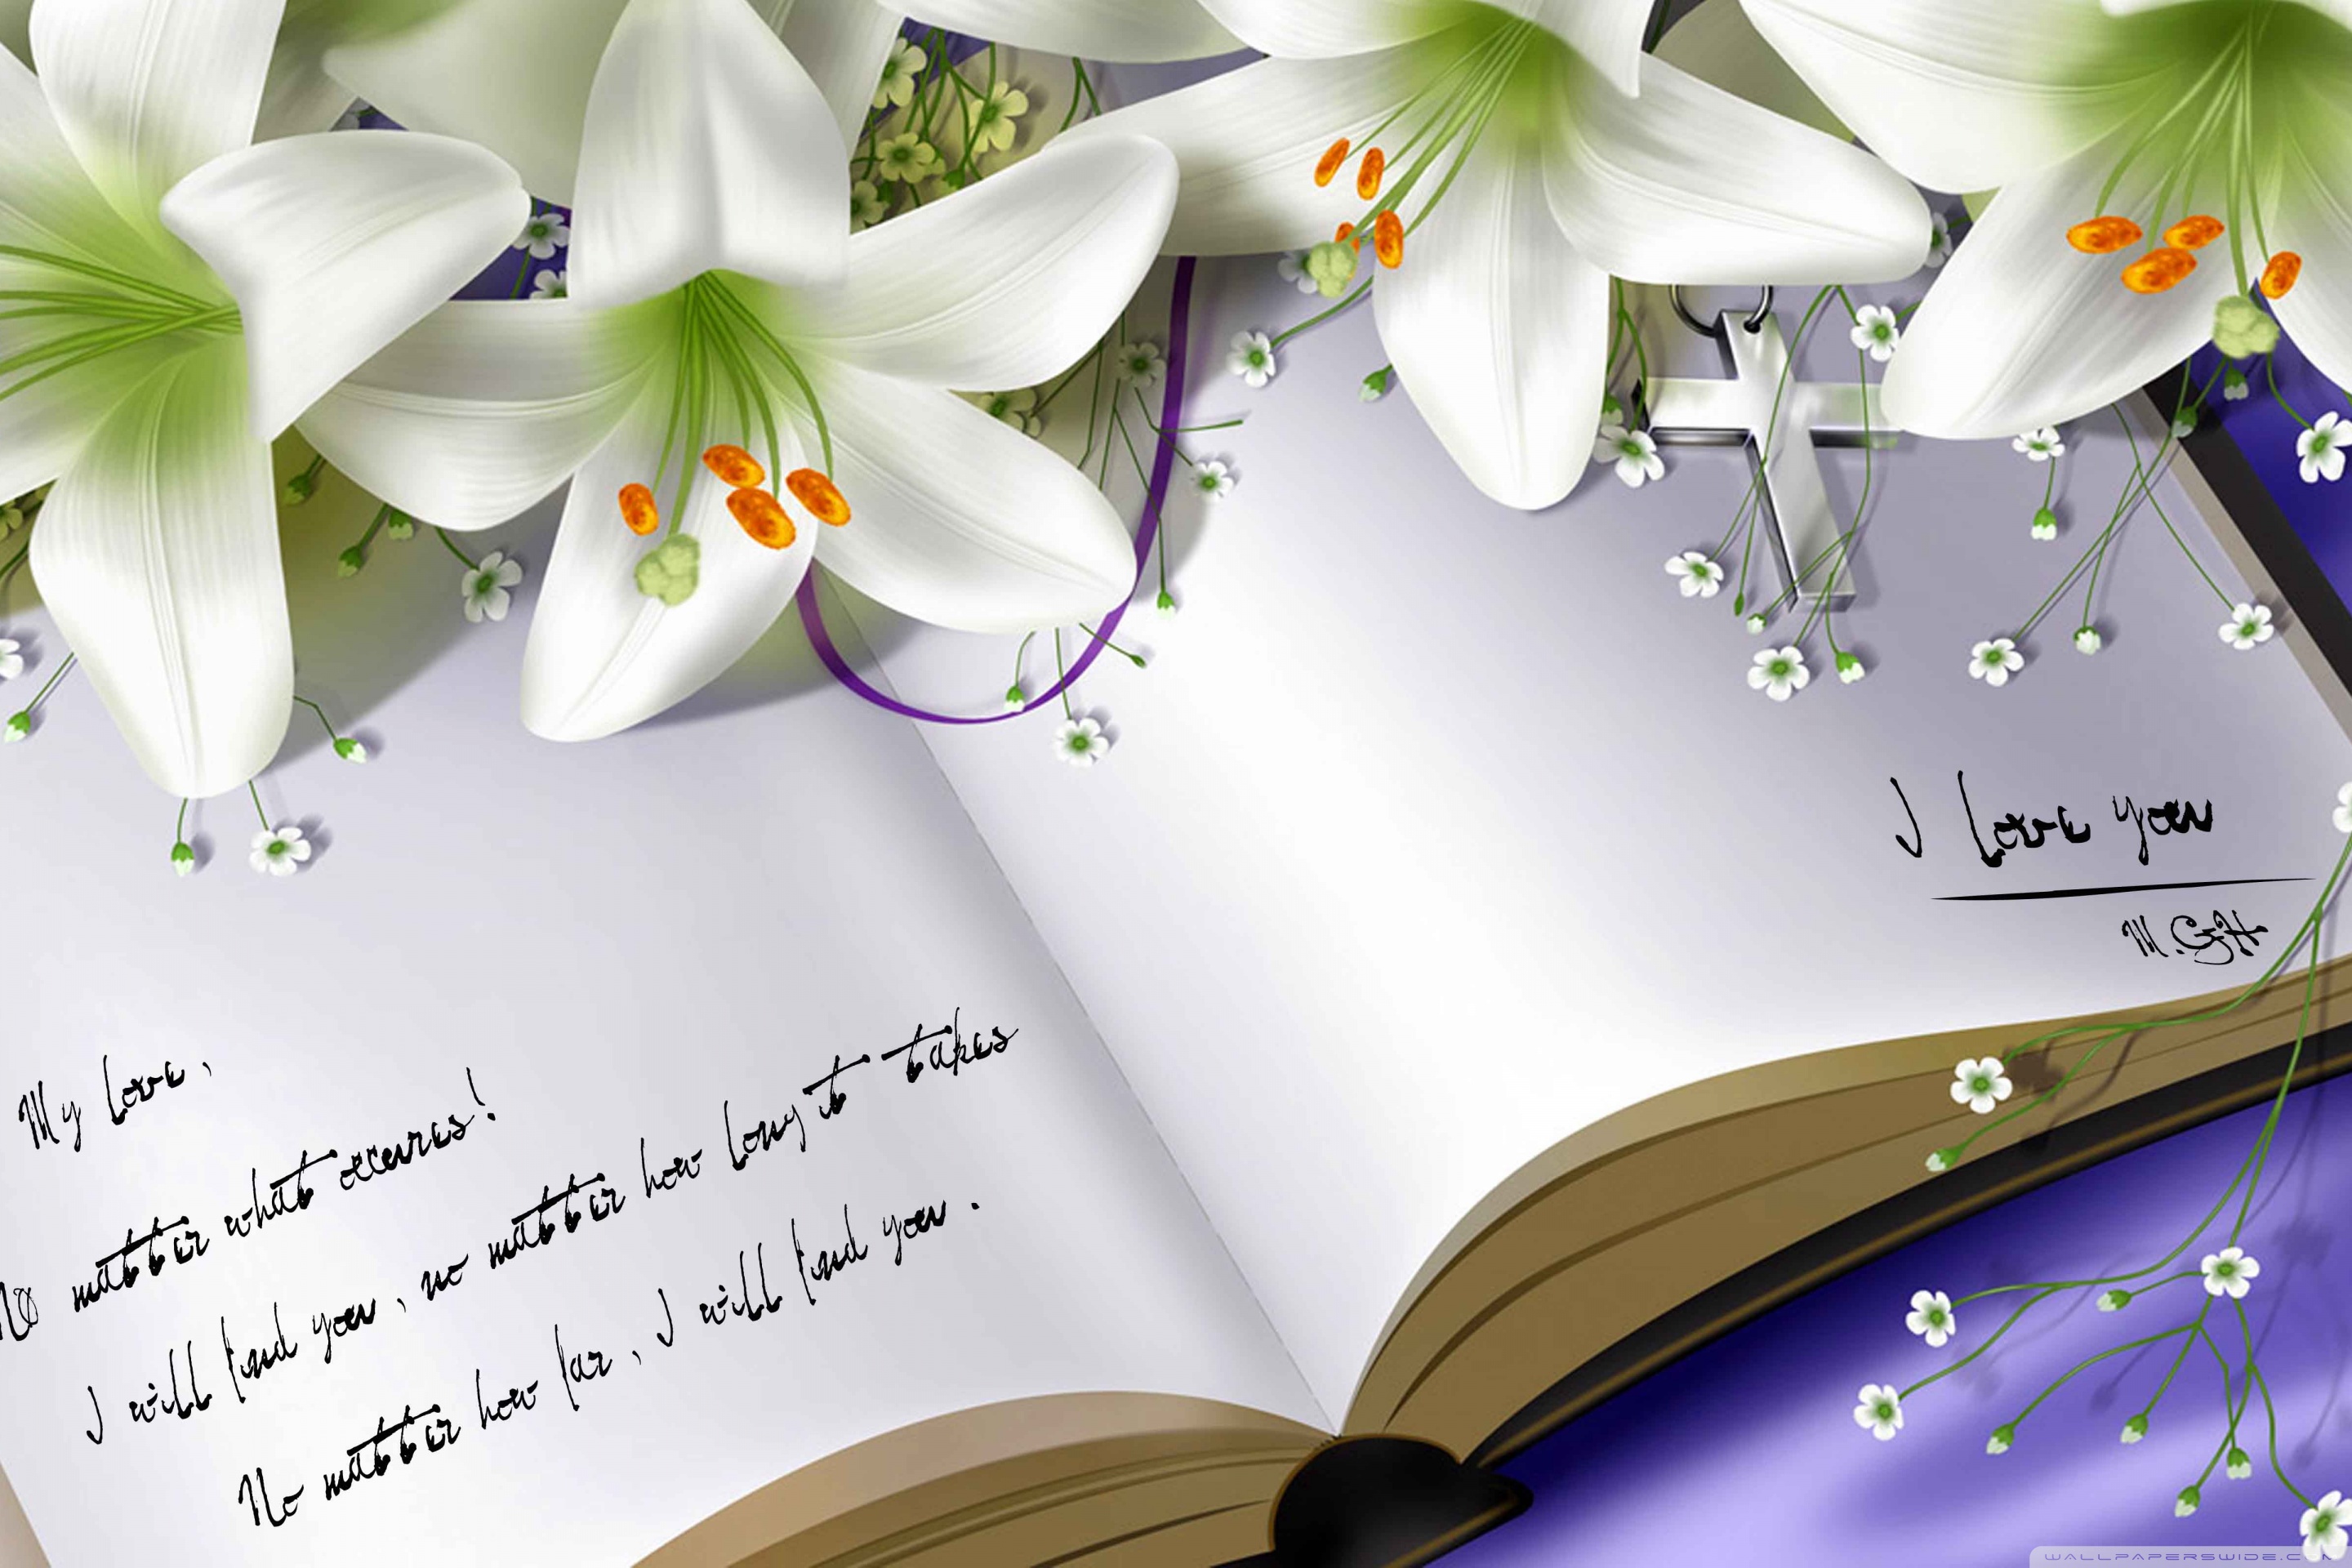 My Love,
No matter what occures!
I will find you, no matter how long it takes
No matter how far, I will find you.
I Love you
M.GH
WALLPAPERSWIDE.C